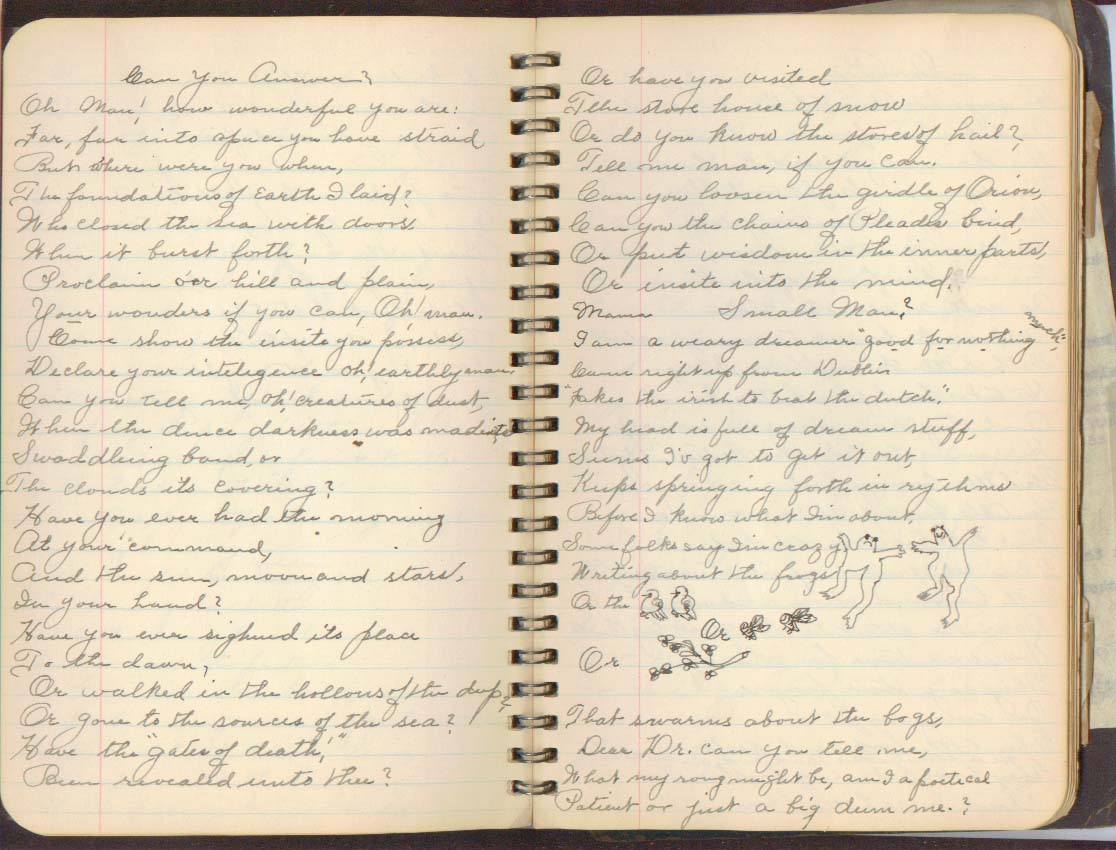 Can You Answer?
Oh Man! how wonderful you are!
Far, far into space you have straid
But where were you when,
The foundations of Earth I laid?
Who closed the sea with doors,
When it burst forth?
Proclaim o'er hill and plain,
Your wonders if you can, Oh! man.
Come show the insite you possess,
Declare your inteligence oh! earthly man.
Can you tell me, Oh! creatures of dust,
When the dence darkness was made its
Swaddling band, or
The clouds its covering?
Have you ever had the morning
At your command,
And the sun, moon and stars,
In your hand?
Have you ever sighned its place
To the dawn,
Or walked in the hollows of the deep?
Or gone to the sources of the sea?
Have the "gates of death,"
Been revealed unto thee?
Or have you visited
The store house of snow
Or do you know the stores of hail?
Tell me man, if you can.
Can you loosen the girdle of Orion,
Can you the chains of Pleades bind,
Or put wisdom in the inner parts,
Or insite into the mind.
Mama Small Man?
I am a weary dreamer "good for nothing much"
Came right up from Dublin
"Takes the irish to beat the dutch."
My head is full of dream stuff,
Seems I'v got to get it out,
Keeps springing forth in rythms
Before I know what I'm about,
Some folks say I'm crazy
Writing about the frogs
Or the
Or
Or
That swarms about the bogs,
Dear Dr. can you tell me,
What my rong might be, am I a poetical
Patient or just a big dum me.?